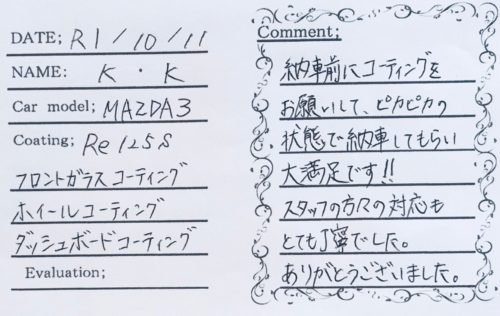 DATE; R1/10/11
NAME: K・K
Car model; MAZDA3
Coating; Re125S
フロントガラスコーティング
ホイールコーティング
ダッシュボードコーティング
Evaluation;
Comment;
納車前にコーティングを
お願いして、ピカピカの
状態で納車してもらい
大満足です!!
スタッフの方々の対応も
とても丁寧でした。
ありがとうございました。